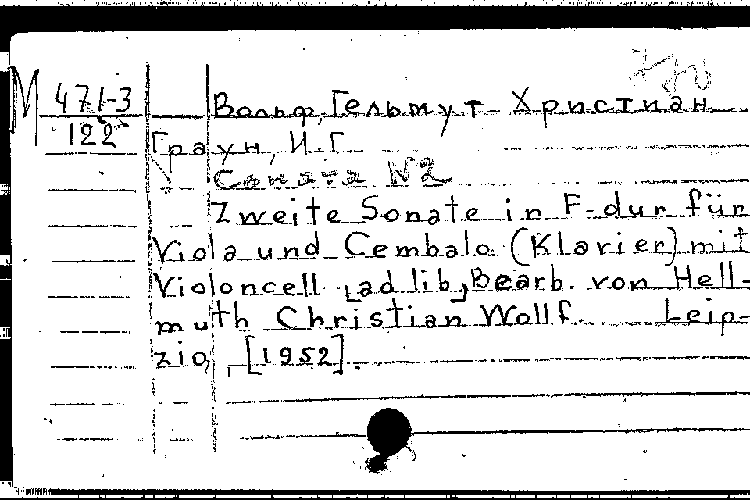 М 471-3
122
Вольф, Гельмут-Христиан
Граун, И.Г.
Соната №2
Zweite Sonate in F-dur für
Viola und Cembalo (Klavier) mit
Violoncell [ad lib] Bearb. von Hell-
muth Christian Wolf. Leip-
zig, [1952].